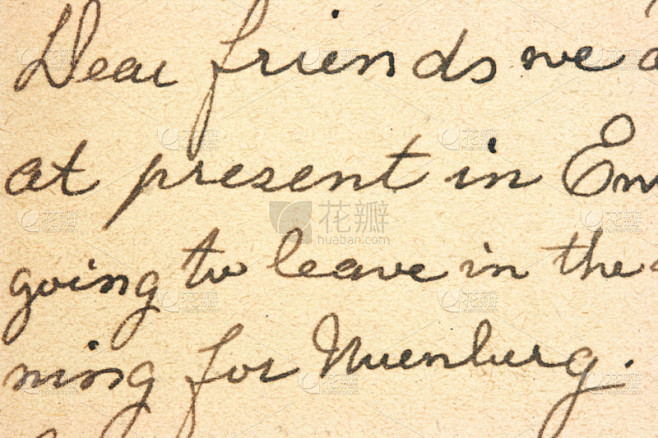 Dear friends we a
at present in Em
going to leave in the
ning for Nuenburg.
花瓣
huaban.com